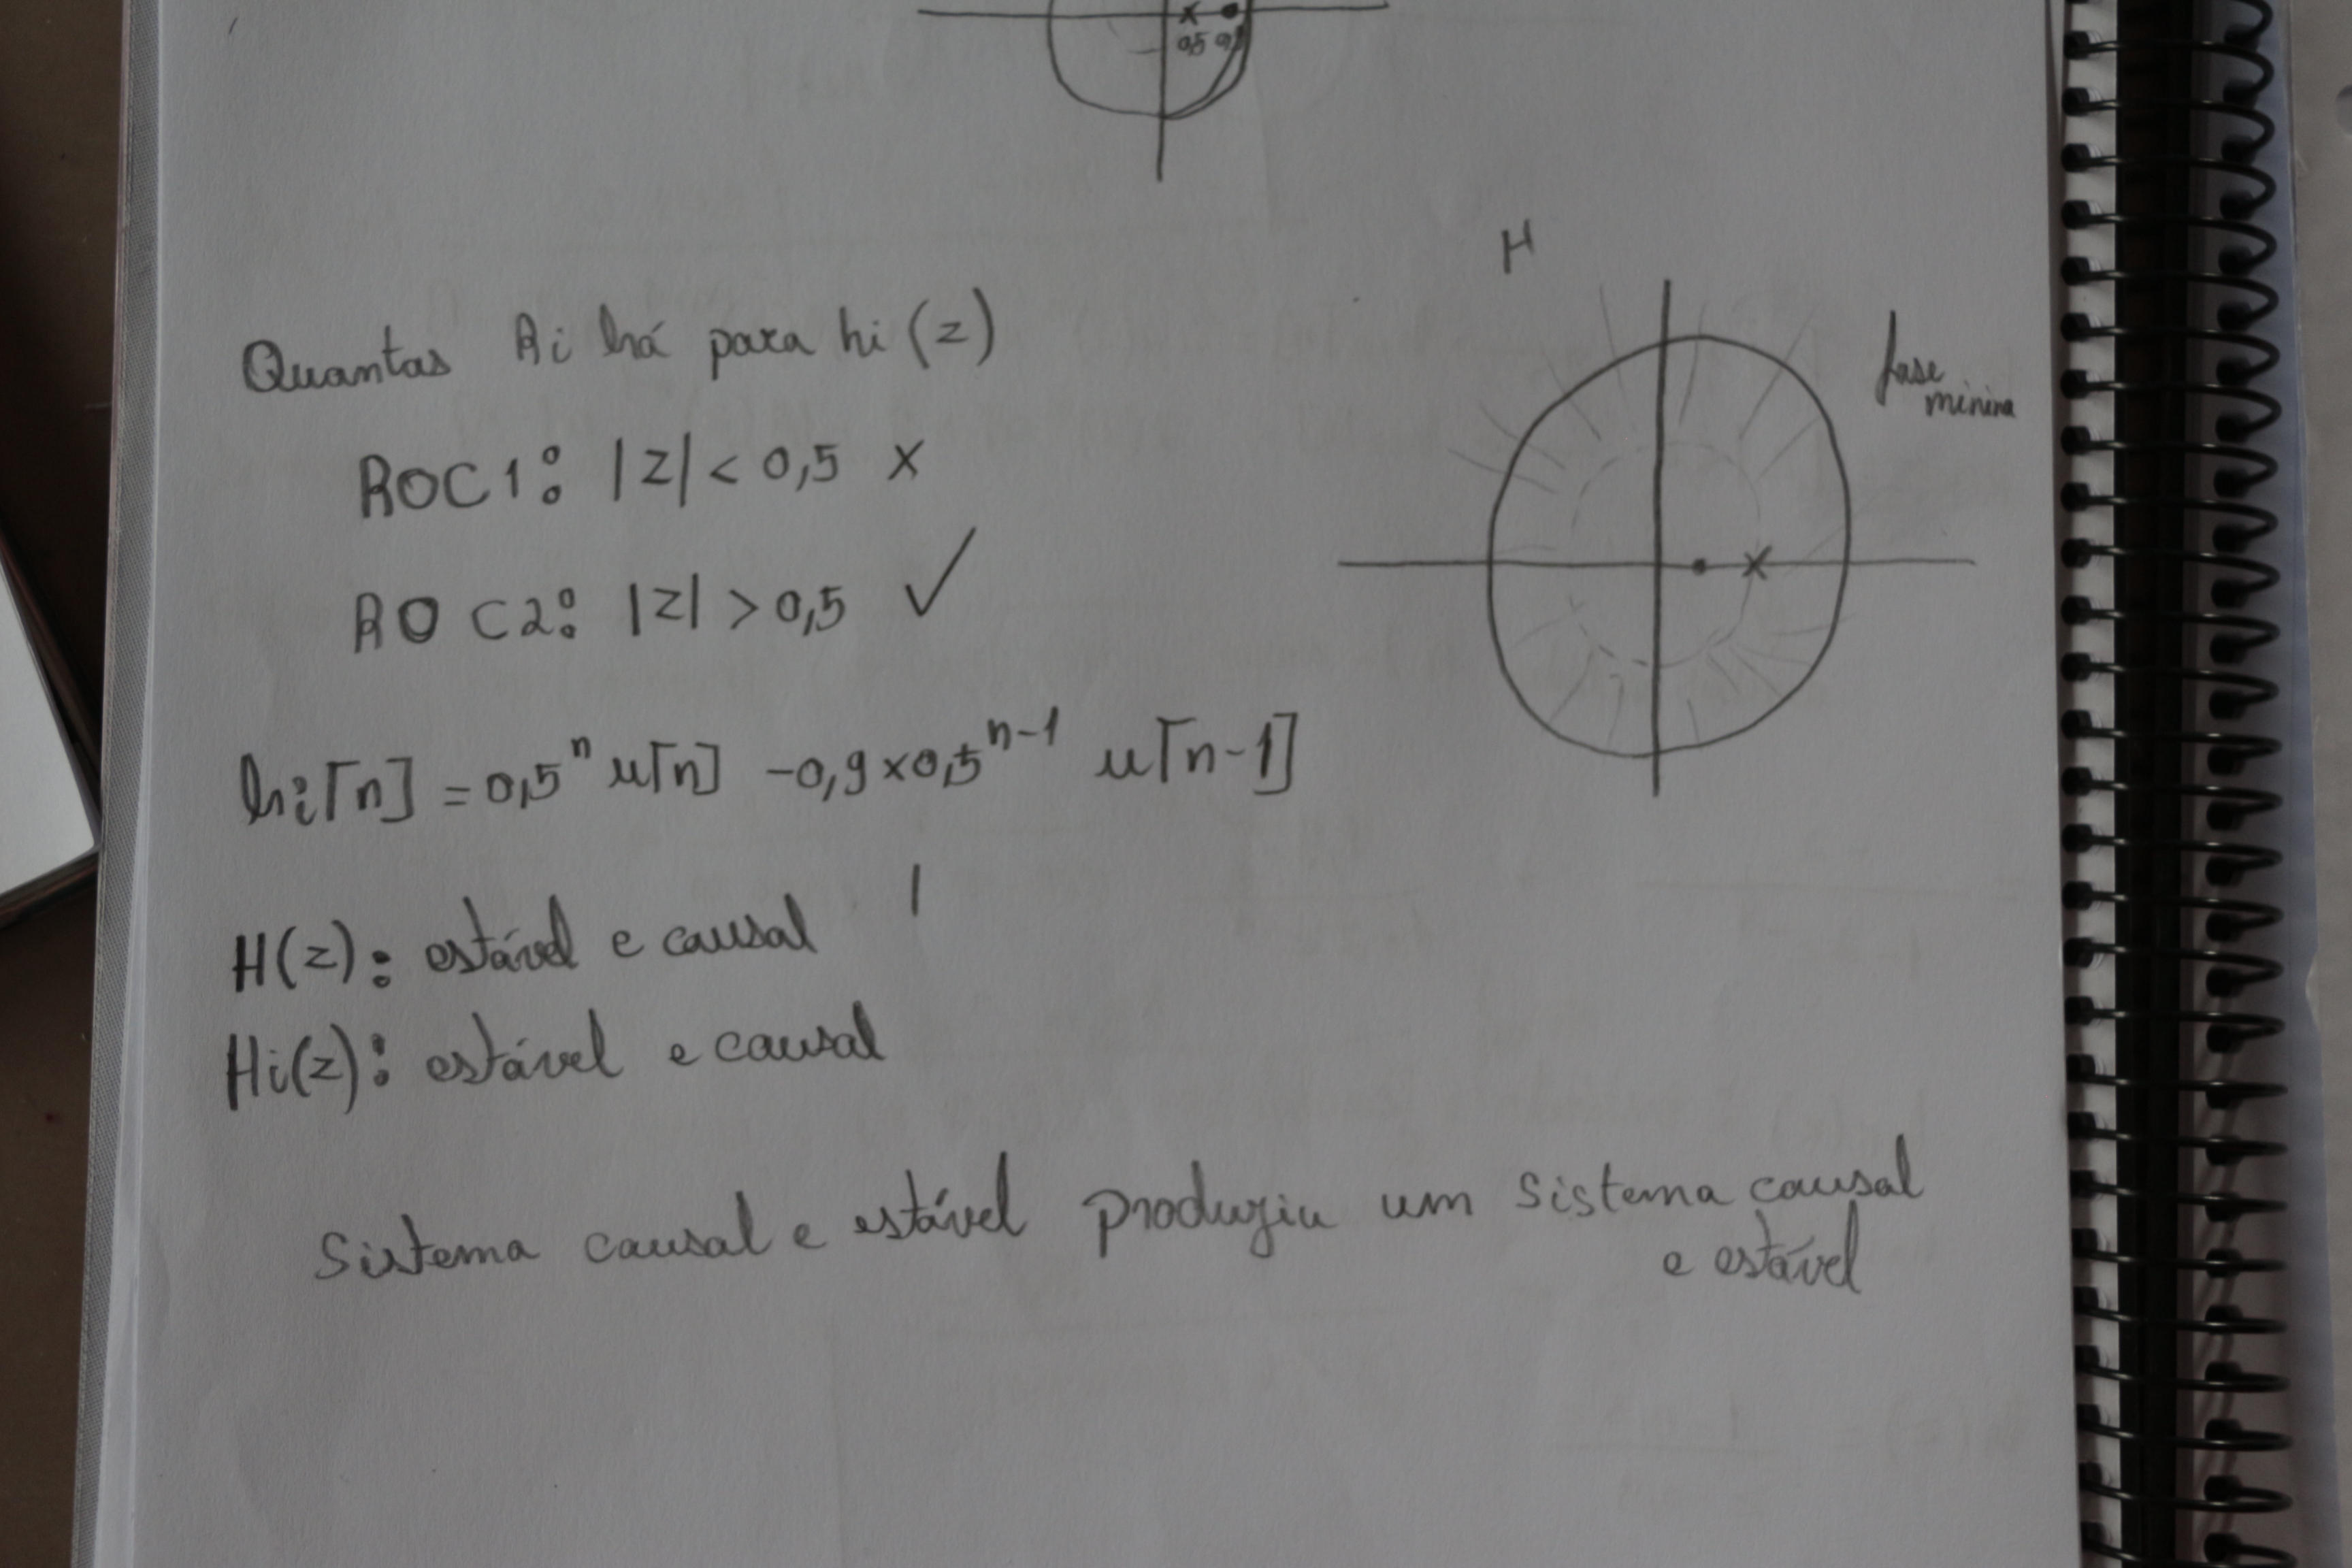 0,5 0,9
H
fase
mínima
Quantas Ri há para hi(z)
ROC1: |z| < 0,5 x
ROC2: |z| > 0,5 ✓
hi[n] = 0,5^n u[n] -0,9x0,5^n-1 u[n-1]
H(z): estável e causal
Hi(z): estável e causal
Sistema causal e estável produziu um sistema causal
e estável